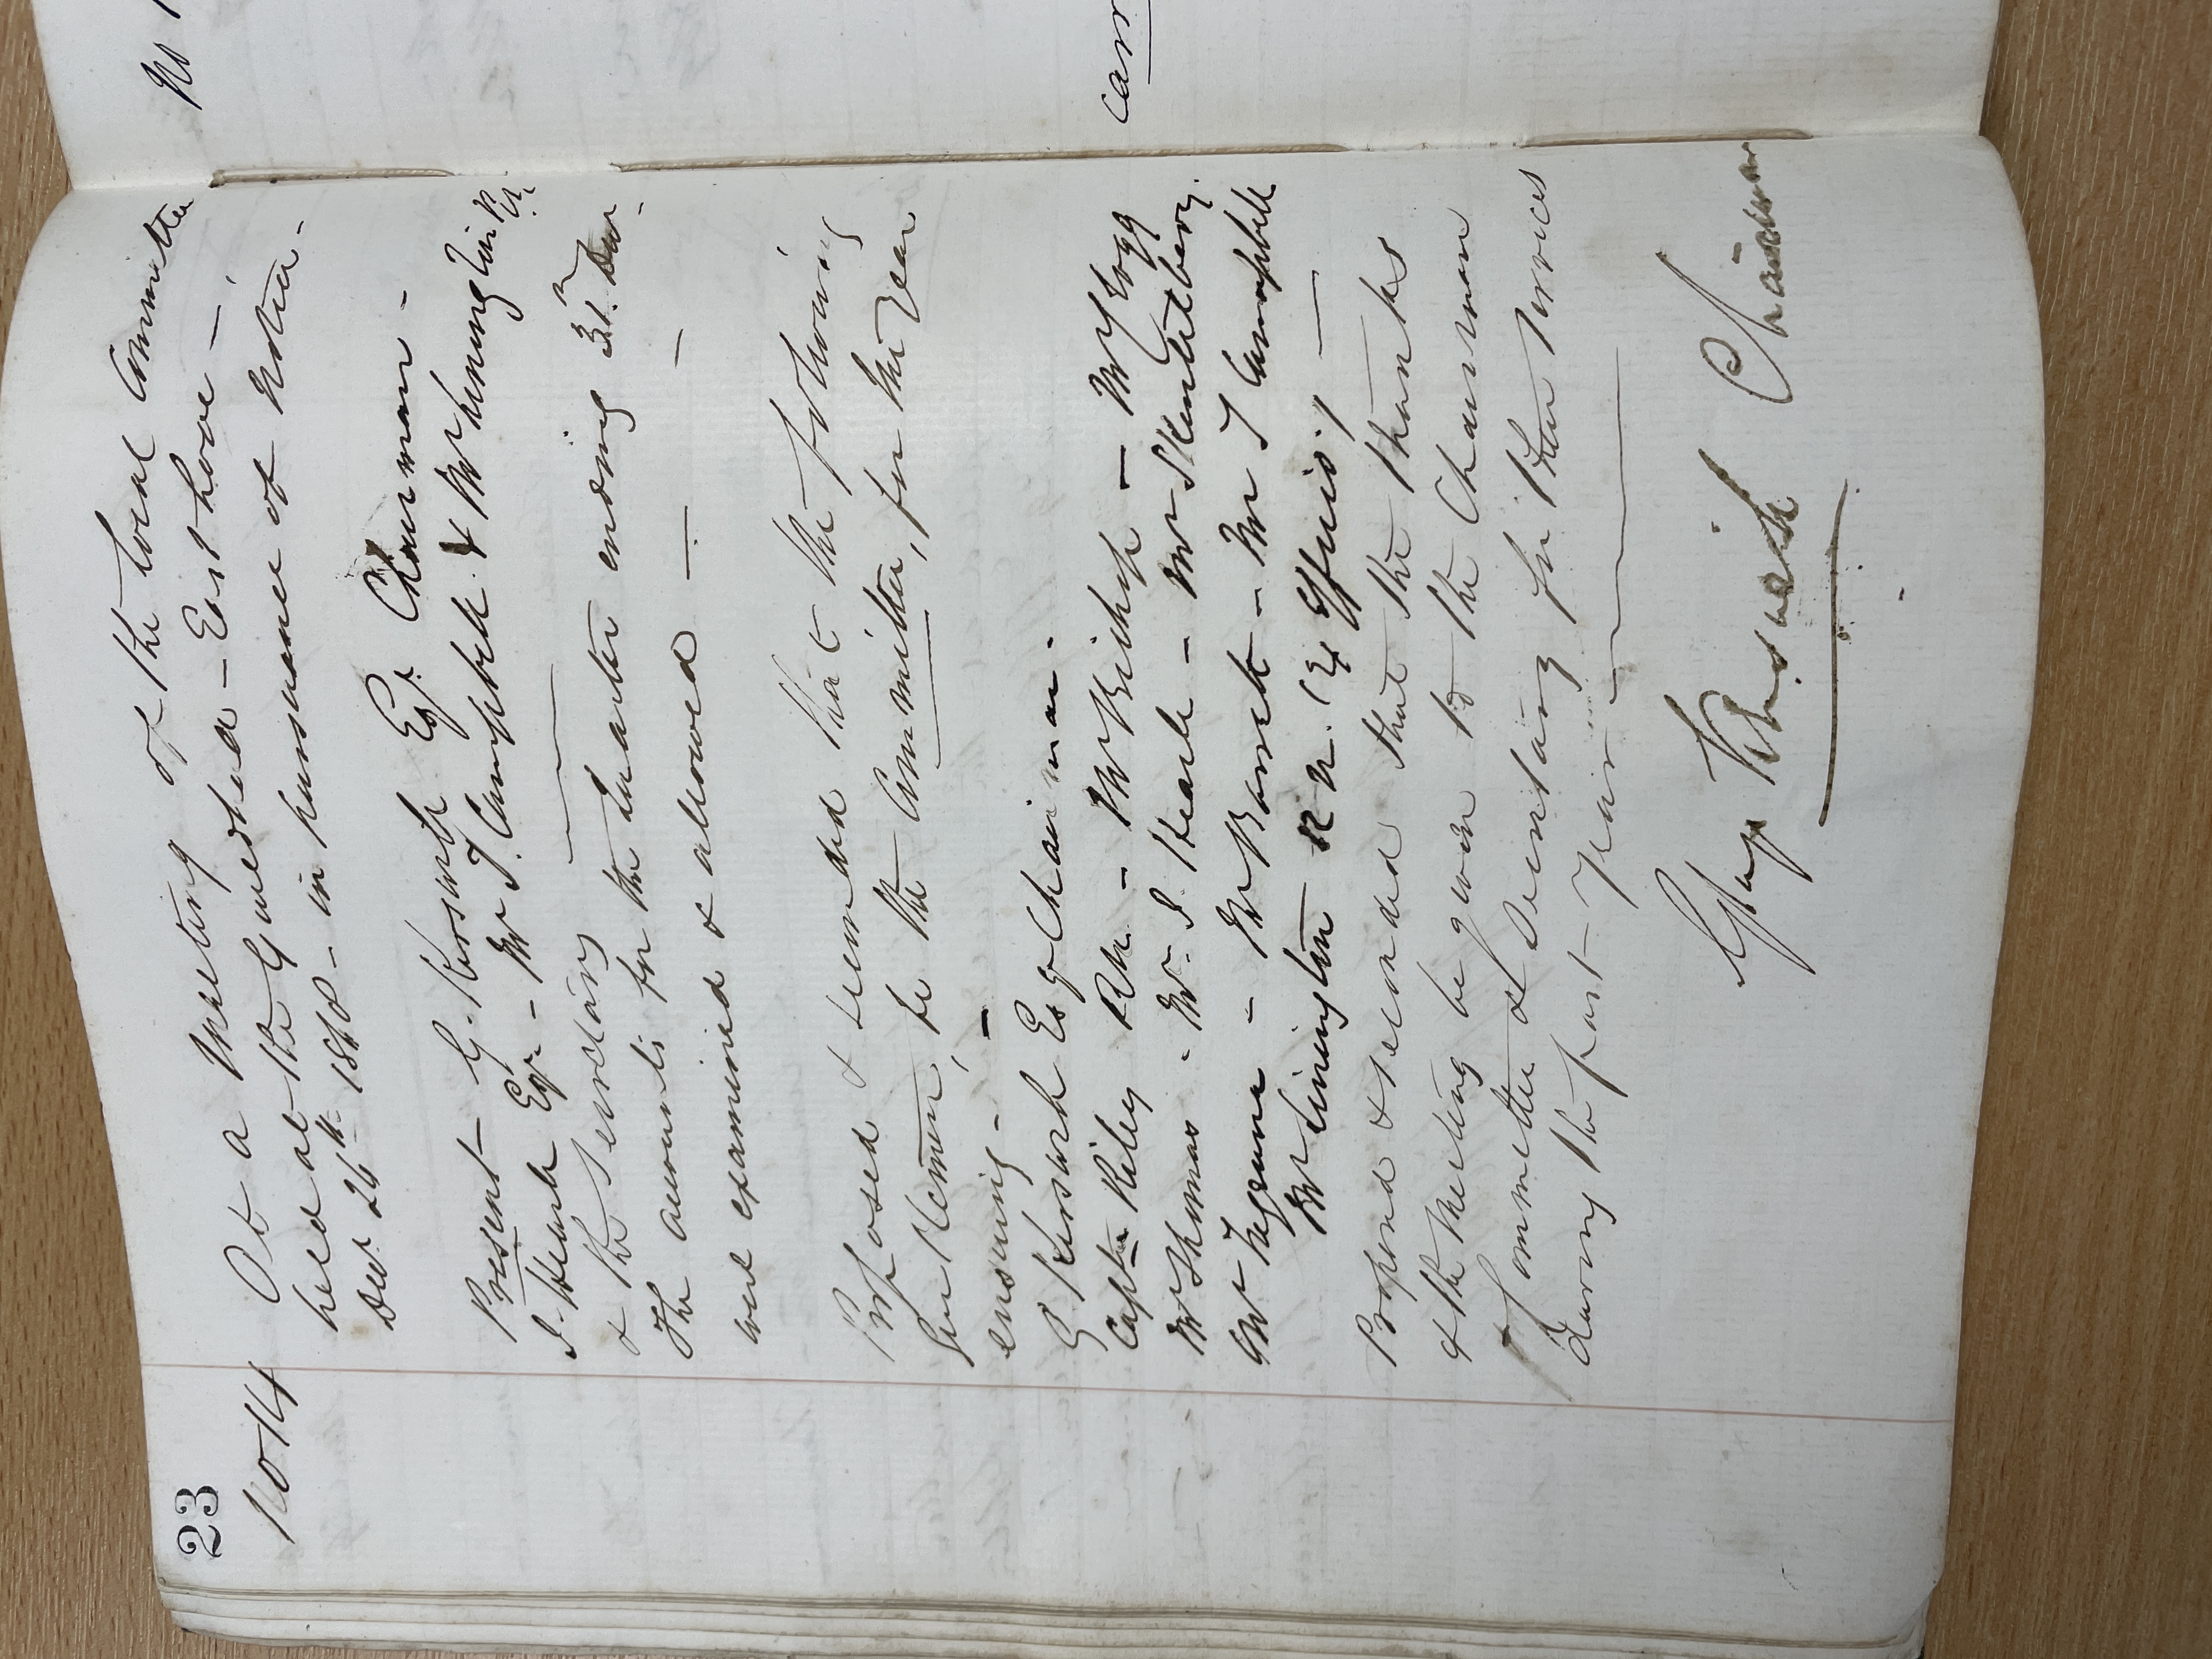 23
No 14
At a Meeting of the Local Committee
held at the Guesthea - East Looe -
Decr 26th 1868 - in pursuance of Notice -
Present - G. Keswick Esqr. Chairman -
I. Hearle Esqr - Mr T. Campbell & Mr Linington R.N.
& the Secretary
The accounts for the Quarter ending 31st Decr -
were examined & allowed -
Proposed & seconded that the following
Gentlemen, be the Committee, for the year
ensuing -
G Keswick Esq Chairman -
Captn Riley RN - Mr Bishop -
Mr Thomas - Mr. I. Hearle - Mr
Mr - Mr Barrett - Mr T Campbell
Mr Linington R.N. (Ex Officio.)
Proposed & seconded that the thanks
of the Meeting be given to the Chairman
Committee & Secretary for their services
during the past Year
George Keswick Chairman
No
carr